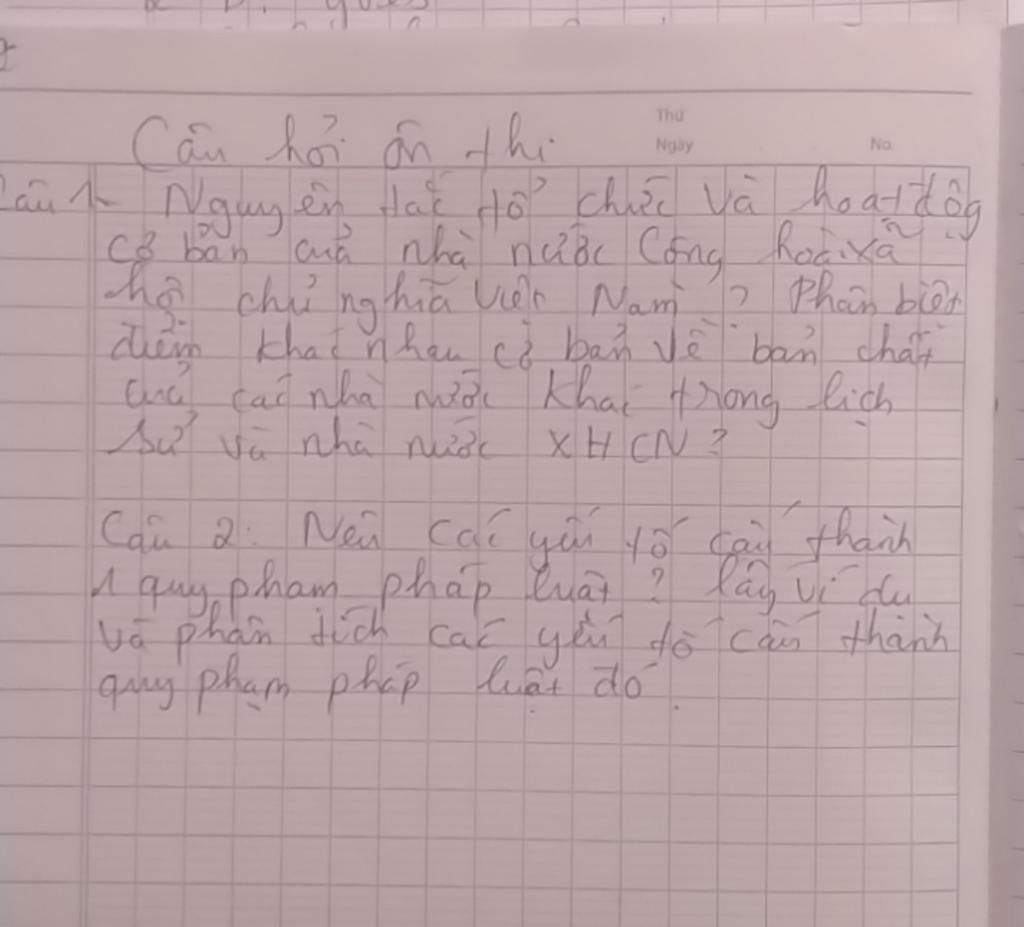 Câu hỏi ôn thi
Thứ
Ngày
No.
Câu 1. Nguyên tắc tổ chức và hoạt động
cơ bản của nhà nước Cộng hoà xã
hội chủ nghĩa Việt Nam? Phân biệt
điểm khác nhau cơ bản về bản chất
của các nhà nước khác trong lịch
sử và nhà nước XHCN?
Câu 2. Nêu các yếu tố cấu thành
1 quy phạm pháp luật? lấy ví dụ
và phân tích các yếu tố cấu thành
quy phạm pháp luật đó.